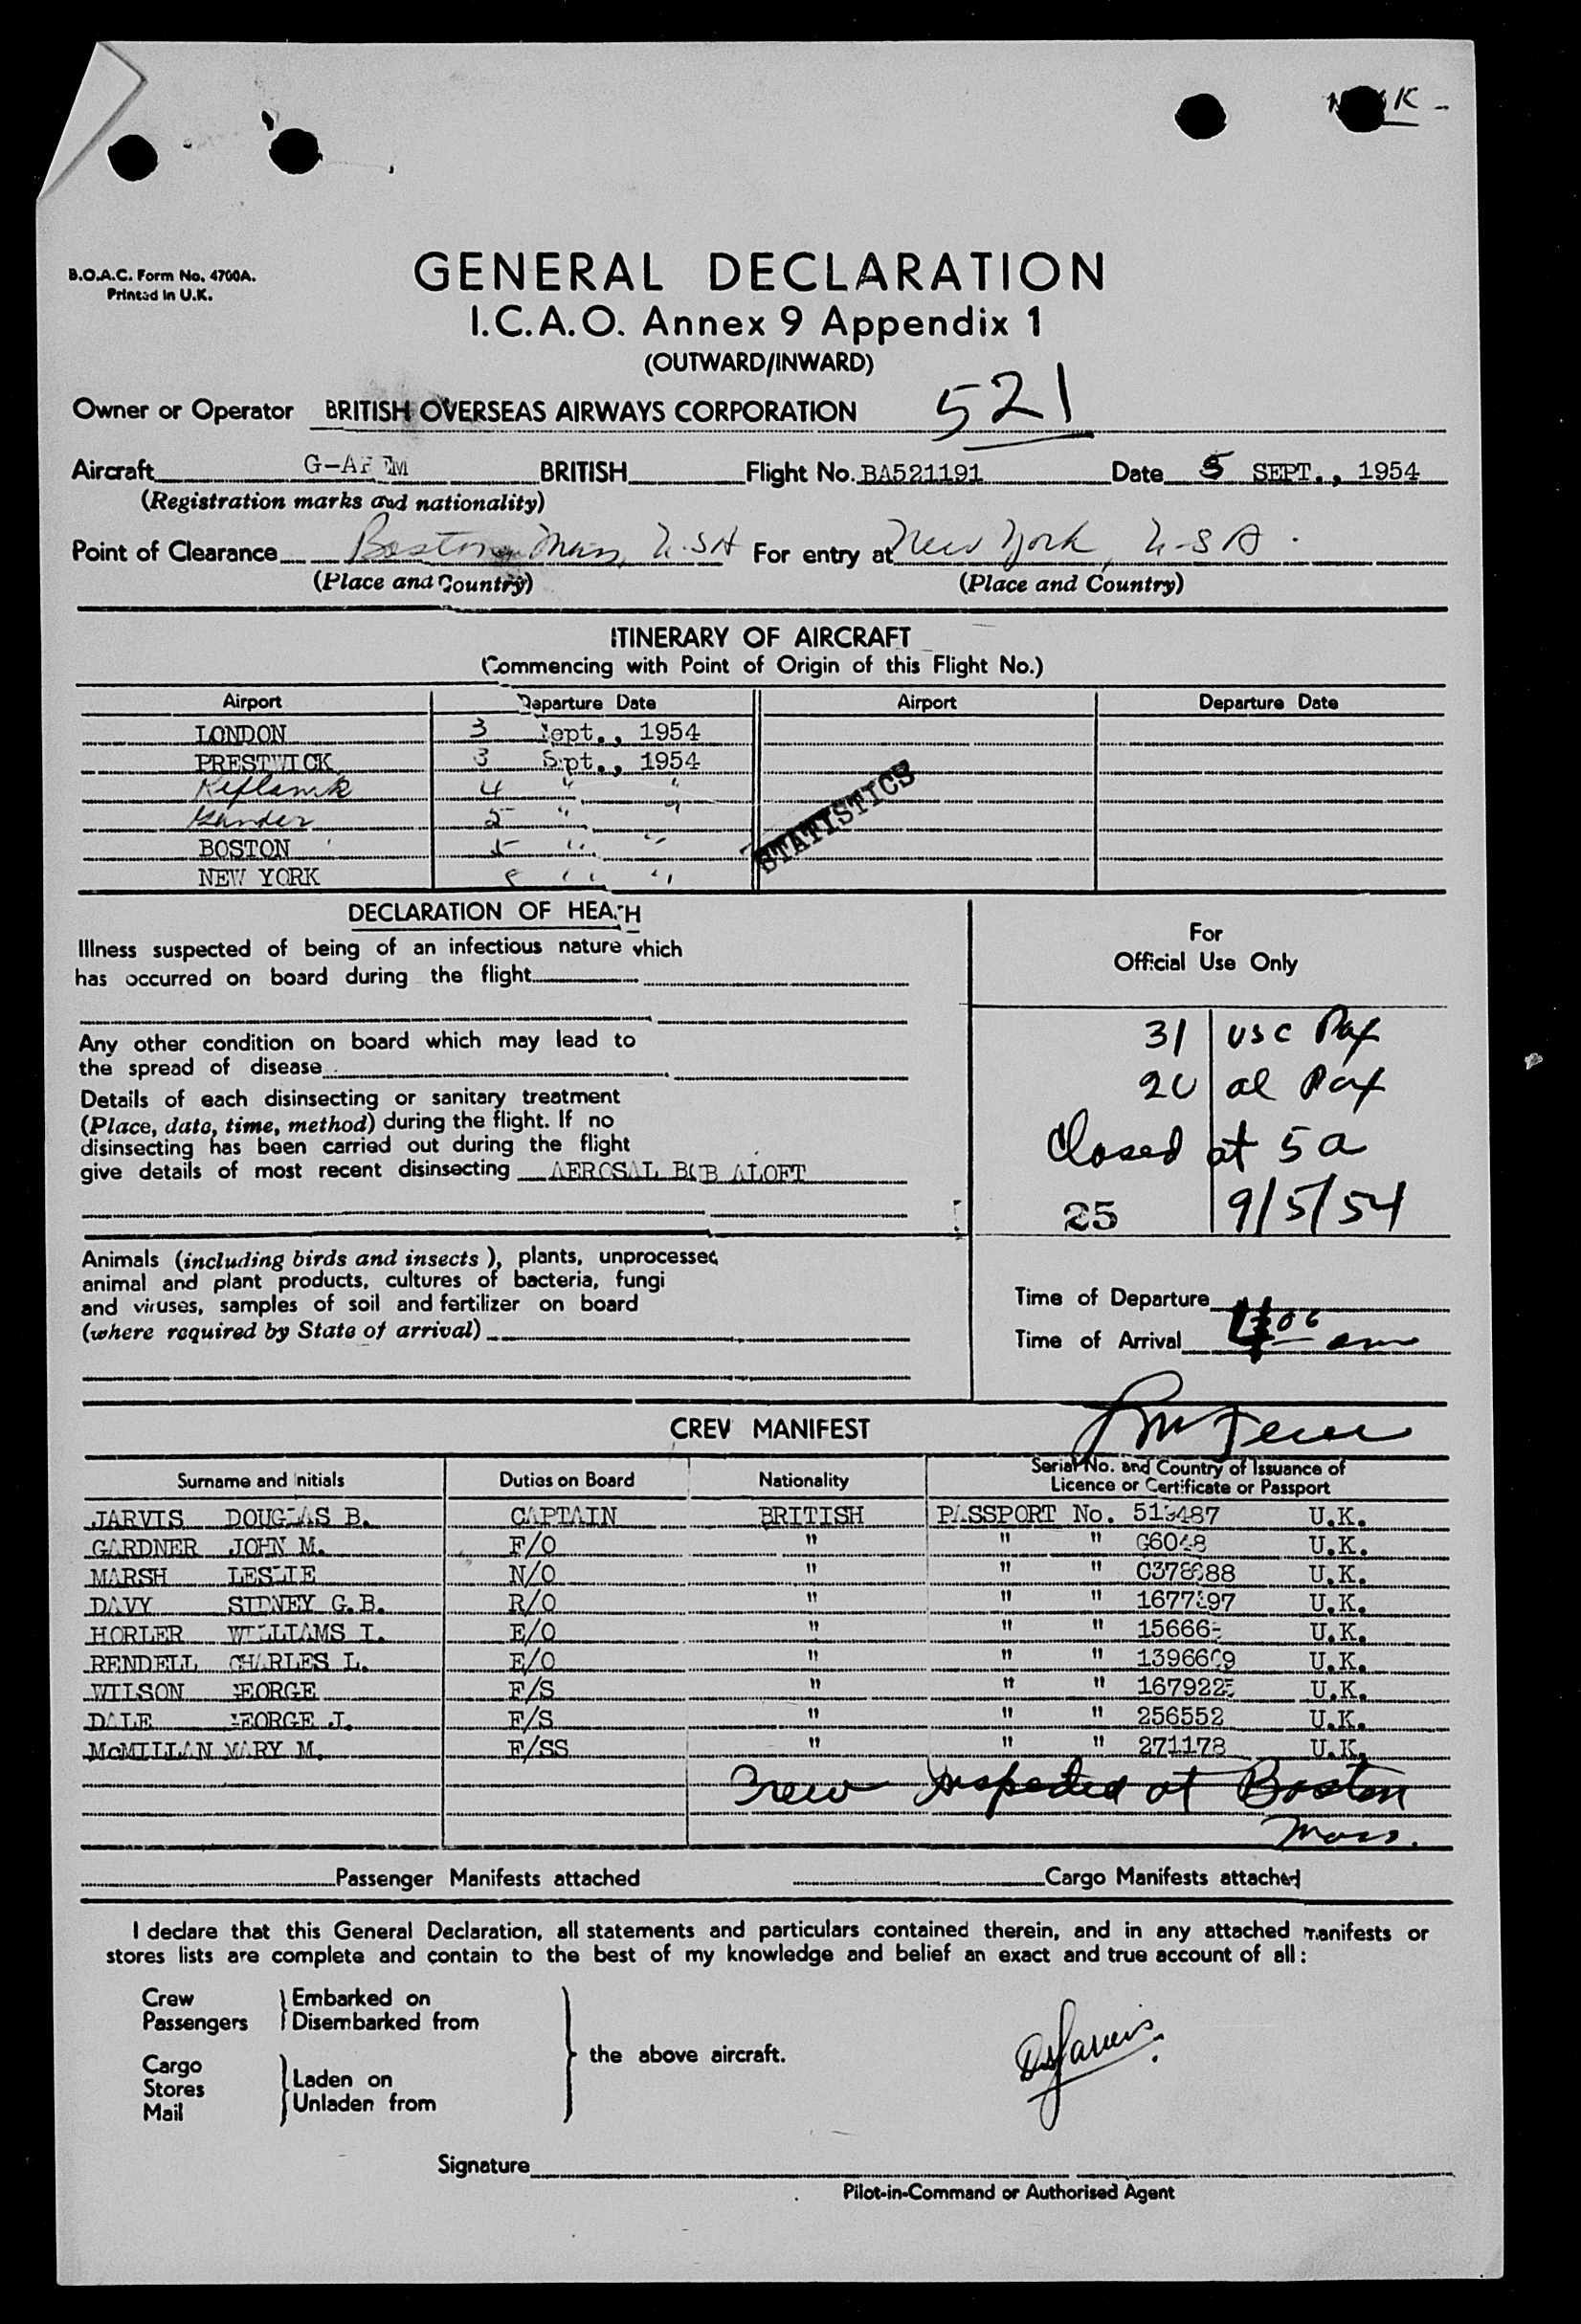 K -
B.O.A.C. Form No. 4700A.
Printed in U.K.
GENERAL DECLARATION
I.C.A.O. Annex 9 Appendix 1
(OUTWARD/INWARD)
521
Owner or Operator BRITISH OVERSEAS AIRWAYS CORPORATION
Aircraft BRITISH Flight No. BA521191 Date 5 SEPT., 1954
(Registration marks and nationality)
Point of Clearance Boston, Mass, U.S.A For entry at New York, U-S A.
(Place and Country) (Place and Country)
ITINERARY OF AIRCRAFT
(Commencing with Point of Origin of this Flight No.)
Airport Departure Date Airport Departure Date
LONDON 3 Sept., 1954
PRESTWICK 3 Sept., 1954
Keflavik 4 " "
Gander 5 " "
BOSTON 5 " "
NEW YORK " "
STATISTICS
DECLARATION OF HEALTH
Illness suspected of being of an infectious nature which
has occurred on board during the flight
Any other condition on board which may lead to
the spread of disease
Details of each disinsecting or sanitary treatment
(Place, date, time, method) during the flight. If no
disinsecting has been carried out during the flight
give details of most recent disinsecting AEROSAL BOB ALOFT
Animals (including birds and insects), plants, unprocessed
animal and plant products, cultures of bacteria, fungi
and viruses, samples of soil and fertilizer on board
(where required by State of arrival)
For
Official Use Only
31 usc Pax
20 al Pax
Closed at 5 a
25 9/5/54
Time of Departure
Time of Arrival am
CREW MANIFEST
Surname and Initials Duties on Board Nationality Serial No. and Country of Issuance of
Licence or Certificate or Passport
JARVIS DOUGLAS B. CAPTAIN BRITISH PASSPORT No. U.K.
GARDNER JOHN M. F/O " " " U.K.
MARSH LESLIE N/O " " " U.K.
DAVY SIDNEY G.B. R/O " " " U.K.
HORLER WILLIAMS I. E/O " " " U.K.
RENDELL CHARLES L. E/O " " " U.K.
WILSON GEORGE F/S " " " U.K.
DALE GEORGE J. F/S " " " 256552 U.K.
McMILLAN MARY M. F/SS " " " 271178 U.K.
Crew inspected at Boston
Mass.
Passenger Manifests attached Cargo Manifests attached
I declare that this General Declaration, all statements and particulars contained therein, and in any attached manifests or
stores lists are complete and contain to the best of my knowledge and belief an exact and true account of all:
Crew
Passengers
Embarked on
Disembarked from
Cargo
Stores
Mail
Laden on
Unladen from
the above aircraft.
DBJarvis.
Signature
Pilot-in-Command or Authorised Agent